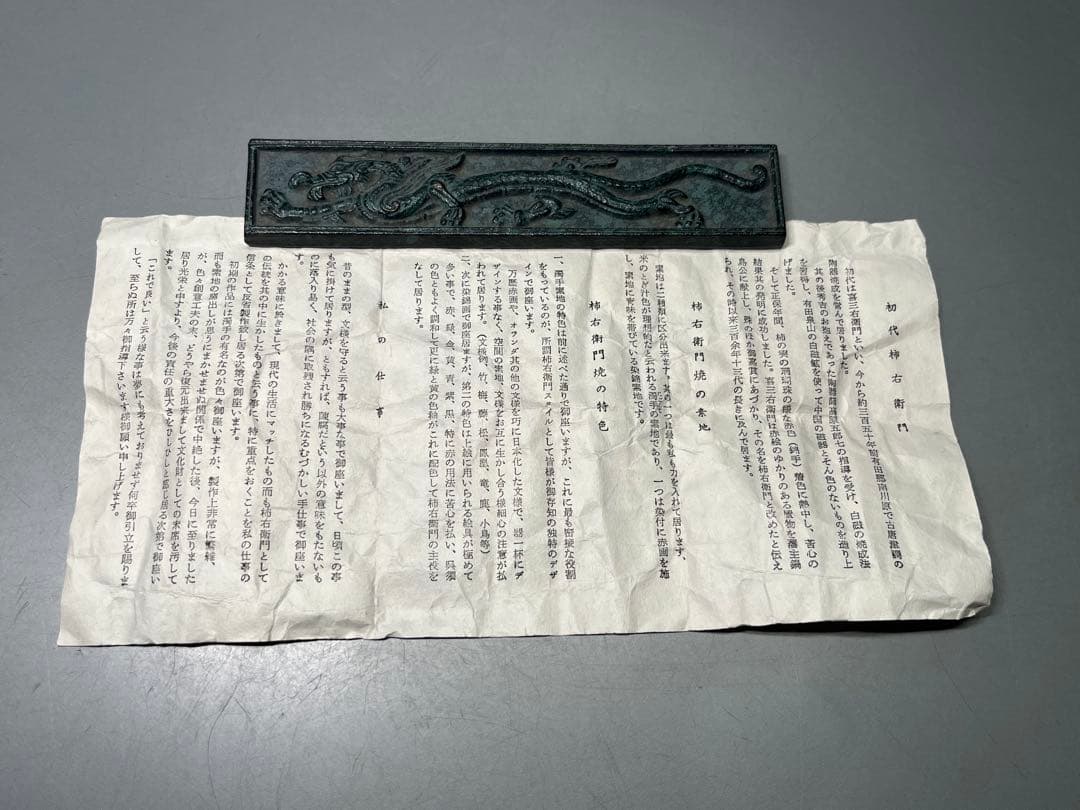 初代柿右衛門
初代は喜三右衛門といい、今から約三百五十年前有田郷南川原で古唐津調の
陶器焼成を営んで居りました。
其の後秀吉のお抱えであった陶器師高原五郎七の指導を受け、白磁の焼成法
を習得し、有田泉山の白磁鉱を使って中国の磁器とそん色のないものを造り上
げました。
そして正保年間、柿の実の珊瑚珠の様な赤色(錦手)着色に熱中し、苦心の
結果其の発明に成功しました。喜三右衛門は赤絵のゆかりのある置物を藩主鍋
島公に献上し、殊のほか御嘉賞にあづかり、その名を柿右衛門と改めたと伝え
られ、その時以来三百余年十三代の長きに及んで居ます。
柿右衛門焼の素地
素地は二種類に区分出来ます。其の一つは最も私も力を入れて居ります、
米のとぎ汁色が理想的だと云われる濁手の素地であり、一つは染付に赤画を施
し、素地に青味を帯びている染錦素地です。
柿右衛門焼の特色
一、濁手素地の特色は前に述べた通りで御座いますが、これに最も密接な役割
をもっているのが、所謂柿右衛門スタイルとして皆様が御存知の独特のデザ
インで御座います。
万歴赤画や、オランダ其の他の文様を巧に日本化した文様で、器一杯にデ
ザインする事なく、空間の素地、文様をお互に生かし合う様細心の注意が払
われて居ります。(文様例、竹、梅、藤、松、鳳凰、竜、鹿、小鳥等)
二、次に染錦画で御座居ますが、第二の特色は上絵に用いられる絵具が極めて
多い事で、赤、緑、金、黄、青、紫、黒、特に赤の用法に苦心を払い、呉須
の色ともよく調和して更に緑と黄の色釉がこれに配色して柿右衛門の主役を
なして居ります。
私の仕事
昔のままの型、文様を守ると云う事も大事な事で御座いまして、日頃この事
も気に掛けて居りますが、ともすれば、陳腐だという以外の意味をもたないも
のに落入り易く、社会の隅に取残され勝ちになるむづかしい手仕事で御座いま
かかる意味に於きまして、現代の生活にマッチしたもの而も柿右衛門として
の伝統を其の中に生かしたものと云う事に、特に重点をおくことを私の仕事の
信条として反省製作致し居る次第で御座います。
初期の作品には濁手の有名なのが色々御座いますが、製作上非常に繁雑、
而も素地の窯出しが思うにまかせませぬ関係で中絶した後、今日に至りました
が、色々創意工夫の末、どうやら復元出来まして文化財としての末席を汚して
居り光栄と申すより、今後の責任の重大さをひしひしと感じ居る次第で御座い
ます。
「これで良い」と云う様な事は夢にも考えておりませず何卒御引立を賜りま
して、至らぬ所は万々御指導下さいます様御願い申し上げます。